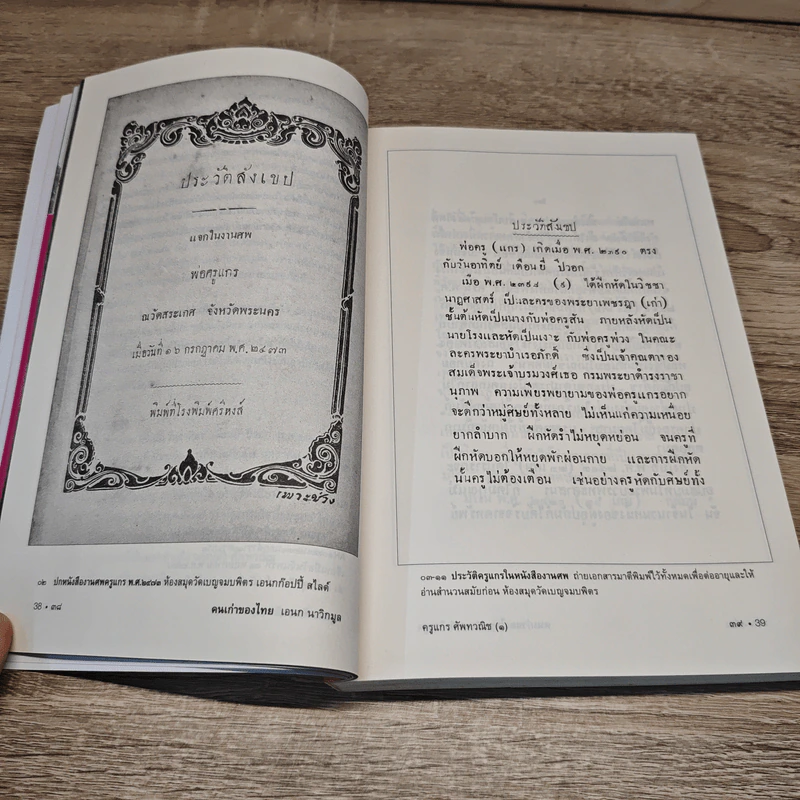 ประวัติสังเขป
แจกในงานศพ
พ่อครูแกร
ณวัดสระเกศ จังหวัดพระนคร
เมื่อวันที่ ๑๖ กรกฎาคม พ.ศ. ๒๔๗๓
พิมพ์ที่โรงพิมพ์ศรีหงส์
เพาะช่าง
๐๒ ปกหนังสืองานศพครูแกร พ.ศ.๒๔๗๓ ห้องสมุดวัดเบญจมบพิตร เอนกก๊อปปี้ สไลด์
38 • ๓๘
คนเก่าของไทย เอนก นาวิกมูล
ประวัติสังเขป
พ่อครู (แกร) เกิดเมื่อ พ.ศ. ๒๓๙๐ ตรง
กับวันอาทิตย์ เดือนยี่ ปีวอก
เมื่อ พ.ศ. ๒๓๙๘ (๙) ได้ฝึกหัดในวิชชา
นาฏศาสตร์ เป็นละครของพระยาเพชรฎา (เก่า)
ชั้นต้นหัดเป็นนางกับพ่อครูสัน ภายหลังหัดเป็น
นายโรงและหัดเป็นเงาะ กับพ่อครูพ่วง ในคณะ
ละครพระยาบำเรอภักดิ์ ซึ่งเป็นเจ้าคุณตาของ
สมเด็จพระเจ้าบรมวงศ์เธอ กรมพระยาดำรงราชา
นุภาพ ความเพียรพยายามของพ่อครูแกรอยาก
จะดีกว่าหมู่ศิษย์ทั้งหลาย ไม่เห็นแก่ความเหนื่อย
ยากลำบาก ฝึกหัดรำไม่หยุดหย่อน จนครูที่
ฝึกหัดบอกให้หยุดพักผ่อนกาย และการฝึกหัด
นั้นครูไม่ต้องเตือน เช่นอย่างครูหัดกับศิษย์ทั้ง
๐๓-๑๑ ประวัติครูแกรในหนังสืองานศพ ถ่ายเอกสารมาตีพิมพ์ไว้ทั้งหมดเพื่อต่ออายุและให้
อ่านสำนวนสมัยก่อน ห้องสมุดวัดเบญจมบพิตร
ครูแกร ศัพทวณิช (๑)
๓๙ • 39